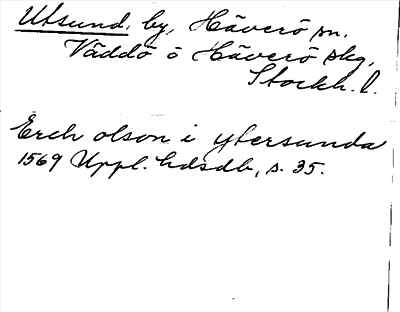 Utsund. by, Häverö sn.
Väddö o Häverö skg,
Stockh. l.
Erch olson i ytersunda
1569 Uppl. hdsdb, s. 35.